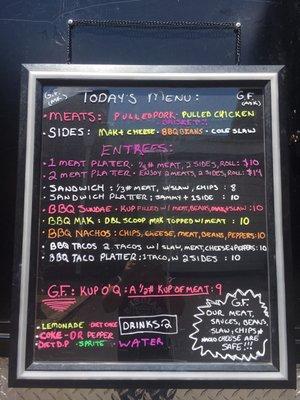 G.F. (ASK)
TODAY'S MENU:
G.F. (ASK)
• MEATS: PULLED PORK • PULLED CHICKEN
BRISKET
• SIDES: MAK + CHEESE • BBQ BEANS • COLE SLAW
ENTREES:
• 1 MEAT PLATTER 1/3# MEAT, 2 SIDES, ROLL: $10
• 2 MEAT PLATER - ENJOY 2 MEATS, 2 SIDES, ROLL: $14
• SANDWICH: 1/3# MEAT, W/SLAW, CHIPS : 8
• SANDWICH PLATTER; SAMMY + 1 SIDE : 10
• BBQ SUNDAE - KUP FILLED W/ MEAT, BEANS, MAK + SLAW : 10
• BBQ MAK • DBL SCOOP MAK TOPPED W/MEAT : 10
• BBQ NACHOS : CHIPS, CHEESE, MEAT, BEANS, PEPPERS : 10
• BBQ TACOS 2 TACOS W/ SLAW, MEAT, CHEESE + PEPPERS : 10
• BBQ TACO PLATTER; 1 TACO, W 2 SIDES : 10
G.F: KUP O'Q : A 1/2# KUP OF MEAT: 9
• LEMONADE • DIET COKE
• COKE • DR PEPPER
• DIET D.P • SPRITE • WATER
DRINKS: 2
G.F.
OUR MEAT,
SAUCES, BEANS,
SLAW, CHIPS +
NACHO CHEESE ARE
SAFE!!!